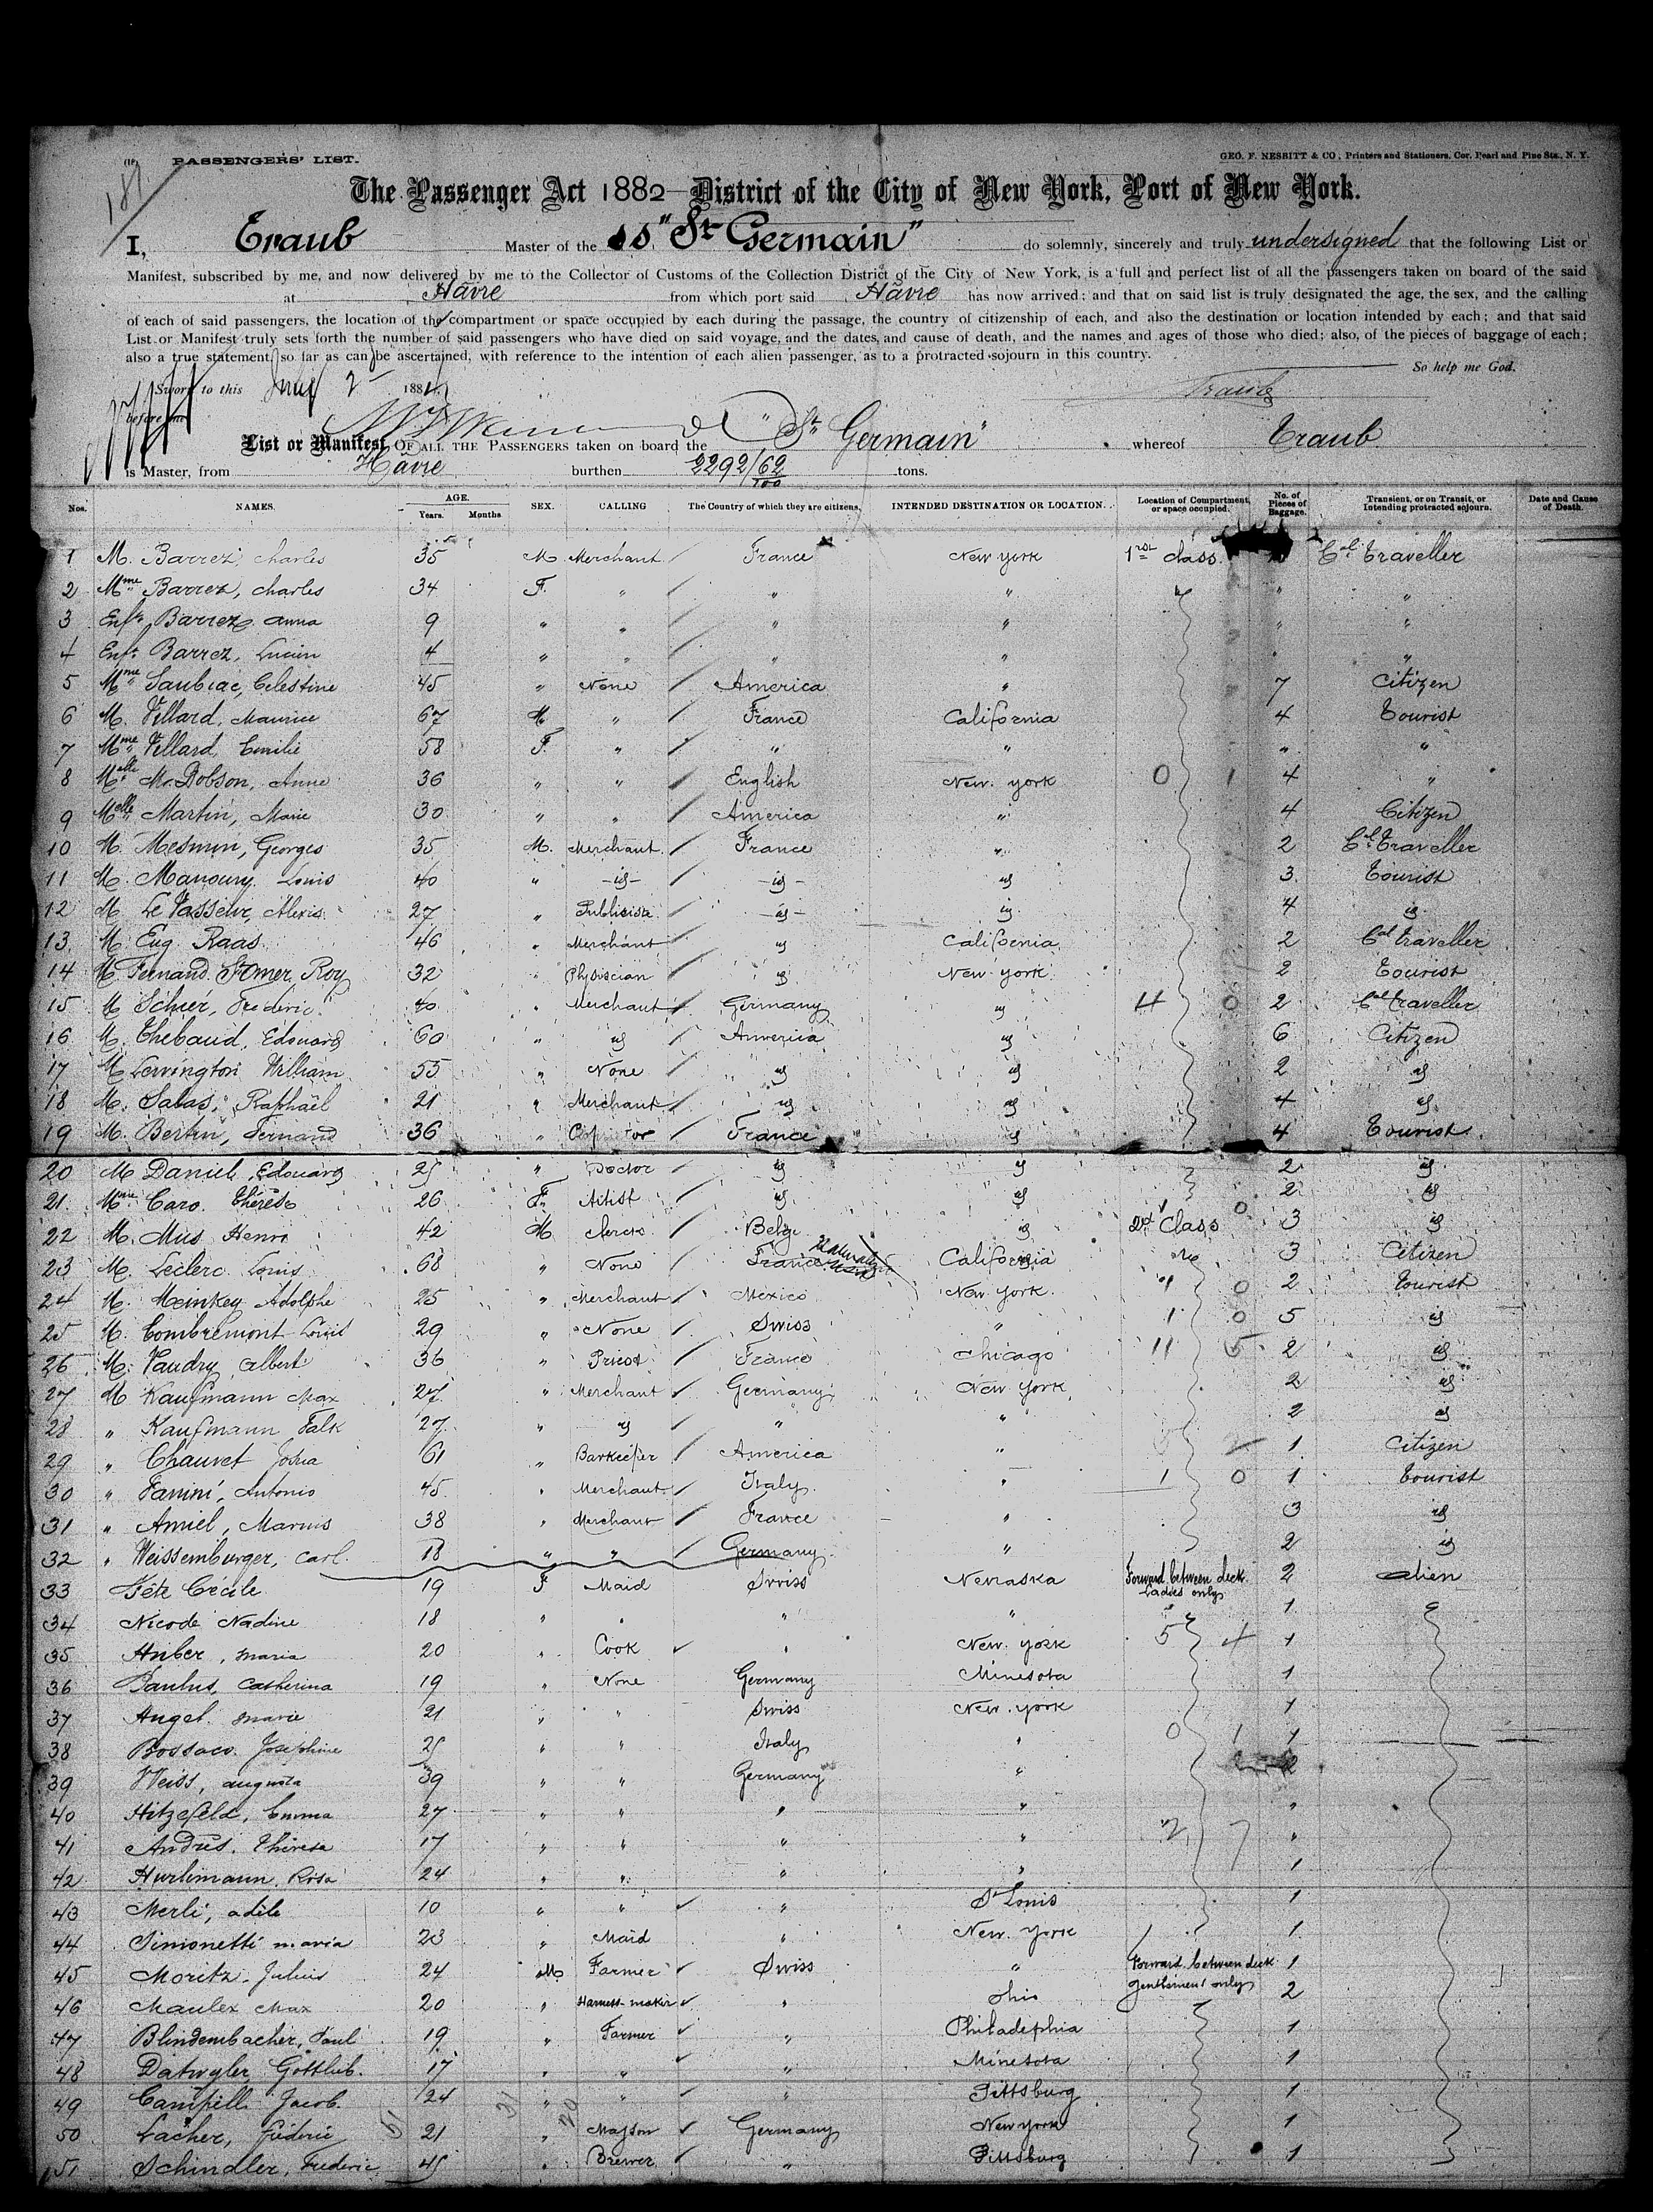 187
(16) PASSENGERS' LIST. GEO. F. NESBITT & CO., Printers and Stationers, Cor. Pearl and Pine Sts., N. Y.
The Passenger Act 1882 District of the City of New York, Port of New York.
I, Traub Master of the SS "St Germain" do solemnly, sincerely and truly undersigned that the following List or
Manifest, subscribed by me, and now delivered by me to the Collector of Customs of the Collection District of the City of New York, is a full and perfect list of all the passengers taken on board of the said
at Hâvre from which port said Hâvre has now arrived; and that on said list is truly designated the age, the sex, and the calling
of each of said passengers, the location of the compartment or space occupied by each during the passage, the country of citizenship of each, and also the destination or location intended by each; and that said
List or Manifest truly sets forth the number of said passengers who have died on said voyage, and the dates, and cause of death, and the names and ages of those who died; also, of the pieces of baggage of each;
also a true statement, so far as can be ascertained, with reference to the intention of each alien passenger, as to a protracted sojourn in this country.
So help me God.
Sworn to this 2 188 Traub
before me
List or Manifest OF ALL THE PASSENGERS taken on board the "St Germain" whereof Traub
is Master, from Havre burthen 2292/62/100 tons.
Nos. NAMES. AGE. Years. Months SEX. CALLING The Country of which they are citizens. INTENDED DESTINATION OR LOCATION. Location of Compartment, or space occupied. No. of Pieces of Baggage. Transient, or on Transit, or Intending protracted sojourn. Date and Cause of Death.
1 M. Barrez, charles 35 M Merchant France New york 1rst class Cal traveller
2 Mme Barrez, charles 34 F. " " " " " "
3 Enft Barrez anna 9 " " " " " "
4 Enft Barrez, Lucien 4 " " " " " "
5 Mme Saubiac, Celestine 45 " None America " 7 Citizen
6 M. Villard, Maurice 67 M. " France California 4 tourist
7 Mme Villard, Emilie 58 F. " " " " "
8 Melle Mc Dobson, Anne 36 " " English New york 0 1 4 "
9 Melle Martin, Marie 30 " " America " 4 Citizen
10 M. Mesmin, Georges 35 M. Merchant France " 2 Cal traveller
11 M. Manoury Louis 40 " id id id 3 tourist
12 M Le Vasseur, Alexis 27 " Publicist id id 4 id
13 M. Eug Raas 46 " Merchant id California 2 Cal traveller
14 M. Fernand. St Omer Roy 32 " Physician id New york 2 tourist
15 M Scheer, Frederic 40 " Merchant Germany id 4 0 2 Cal traveller
16 M. Thebaud, Edouard 60 " id America id 6 Citizen
17 M Lervington William 55 " None id id 2 id
18 M. Salas, Raphaël 21 " Merchant id id 4 id
19 M. Bertin, Fernand 36 " France id 4 tourist
20 M Daniel, Edouard 25 " Doctor id id 2 id
21 Mme Caro. thérèse 26 F. Artist id id 0 2 id
22 M. Mus Henri 42 M Clerck Belge id 2d Class 3 id
23 M. Leclerc Louis 68 " None France California 3 Citizen
24 M. Meinkey Adolphe 25 " Merchant Mexico New york 4 0 2 tourist
25 M. Combremont Louis 29 " None Swiss " 1 0 5 id
26 M. Vaudry, albert 36 " Priest France Chicago 11 5 2 id
27 M Kaufmann Max 27 " Merchant Germany New york 2 id
28 " Kaufmann Falk 27 " id " " 2 id
29 " Chauvet Josua 61 " Barkeeper America " 1 Citizen
30 " Fanini, Antonio 45 " Merchant Italy " 1 0 1 tourist
31 " Amiel, Marius 38 " Merchant France " 3 id
32 " Weissemburger, Carl. 18 " " Germany " 2 id
33 Fête Cécile 19 F Maid Swiss Nevraska Forward between deck Ladies only 2 alien
34 Nicode Nadine 18 " " " " " 1
35 Huber, maria 20 " Cook " New york 5 4 1
36 Paulus, Catherina 19 " None Germany Minesota 1
37 Angel. marie 21 " " Swiss New york 1
38 Bossaco. Josephine 25 " " Italy " 0 1 1
39 Weiss, augusta 39 " " Germany " 2
40 Hitzefeld, Emma 27 " " " " "
41 Andrès. thérèse 17 " " " " 2 7 "
42 Hurlimann. Rosa 24 " " " " 1
43 Merli, adèle 10 " " " St Louis 1
44 Simonetti maria 23 " Maid " New york 1
45 Moritz. Julius 24 M Farmer Swiss " Forward between deck gentlemens only 1
46 Maulex Max 20 " Harness-maker " Ohio 2
47 Blindembacher, Paul 19 " Farmer " Philadephia 1
48 Datwyler, Gottlieb. 17 " " " Minesota 1
49 Campell Jacob. 24 " " " Pittsburg 1
50 Lacher, Frédéric 21 " Masson Germany New york 1
51 Schindler, Frederic 45 " Brewer " Pittsburg 1